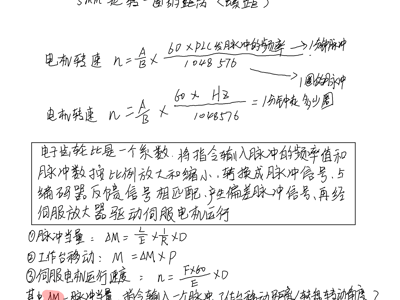 5mm 是转一圈的距离（螺距）
电机转速 n = A/B × 60×PLC发脉冲的频率/1048576
→ 1分钟脉冲
→ 1圈的脉冲
电机转速 n = A/B × 60 × Hz/1048576 = 1分钟转多少圈
电子齿轮比是一个系数，将指令输入脉冲的频率值和
脉冲数按比例放大和缩小，转换成脉冲信号，与
编码器反馈信号相匹配，产生偏差脉冲信号，再经
伺服放大器驱动伺服电机运行
①脉冲当量：ΔM = L/E × 1/R × D
②工作台移动：M = ΔM × P
③伺服电机运行速度：n = F×60/E × D
其中 ΔM 脉冲当量 指令输入一个脉冲 工作台移动距离/